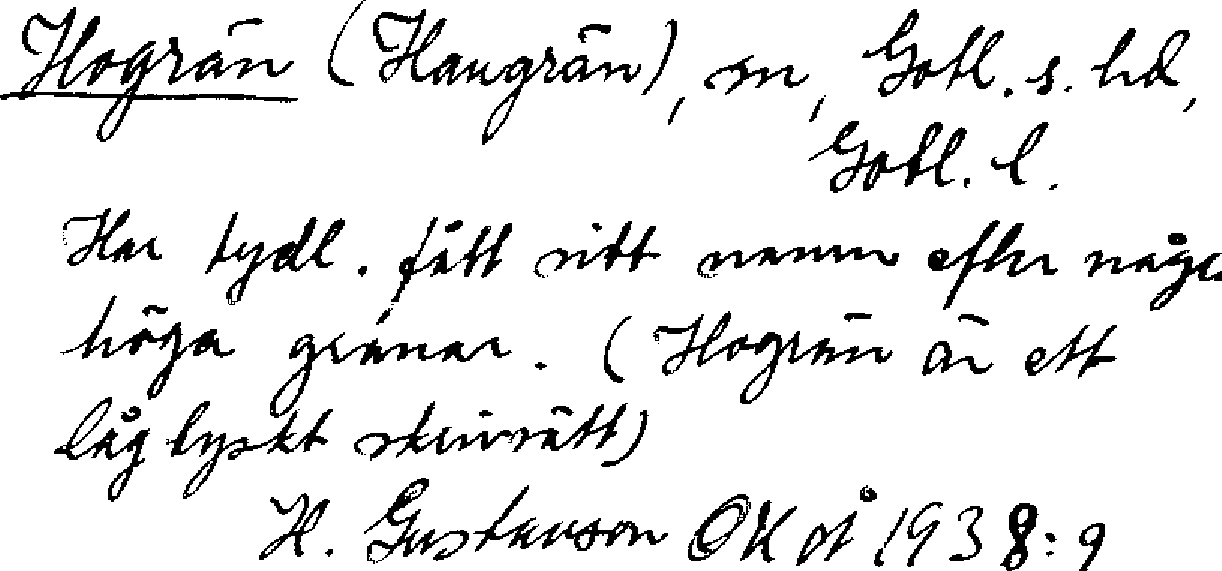 Hogrän (Haugrän), sn, Gotl. s. hd,
Gotl. l.
Har tydl. fått sitt namn efter någr
höga granar. (Hogrän är ett
lågtyskt skrivsätt)
H. Gustavson OK på 1938:9